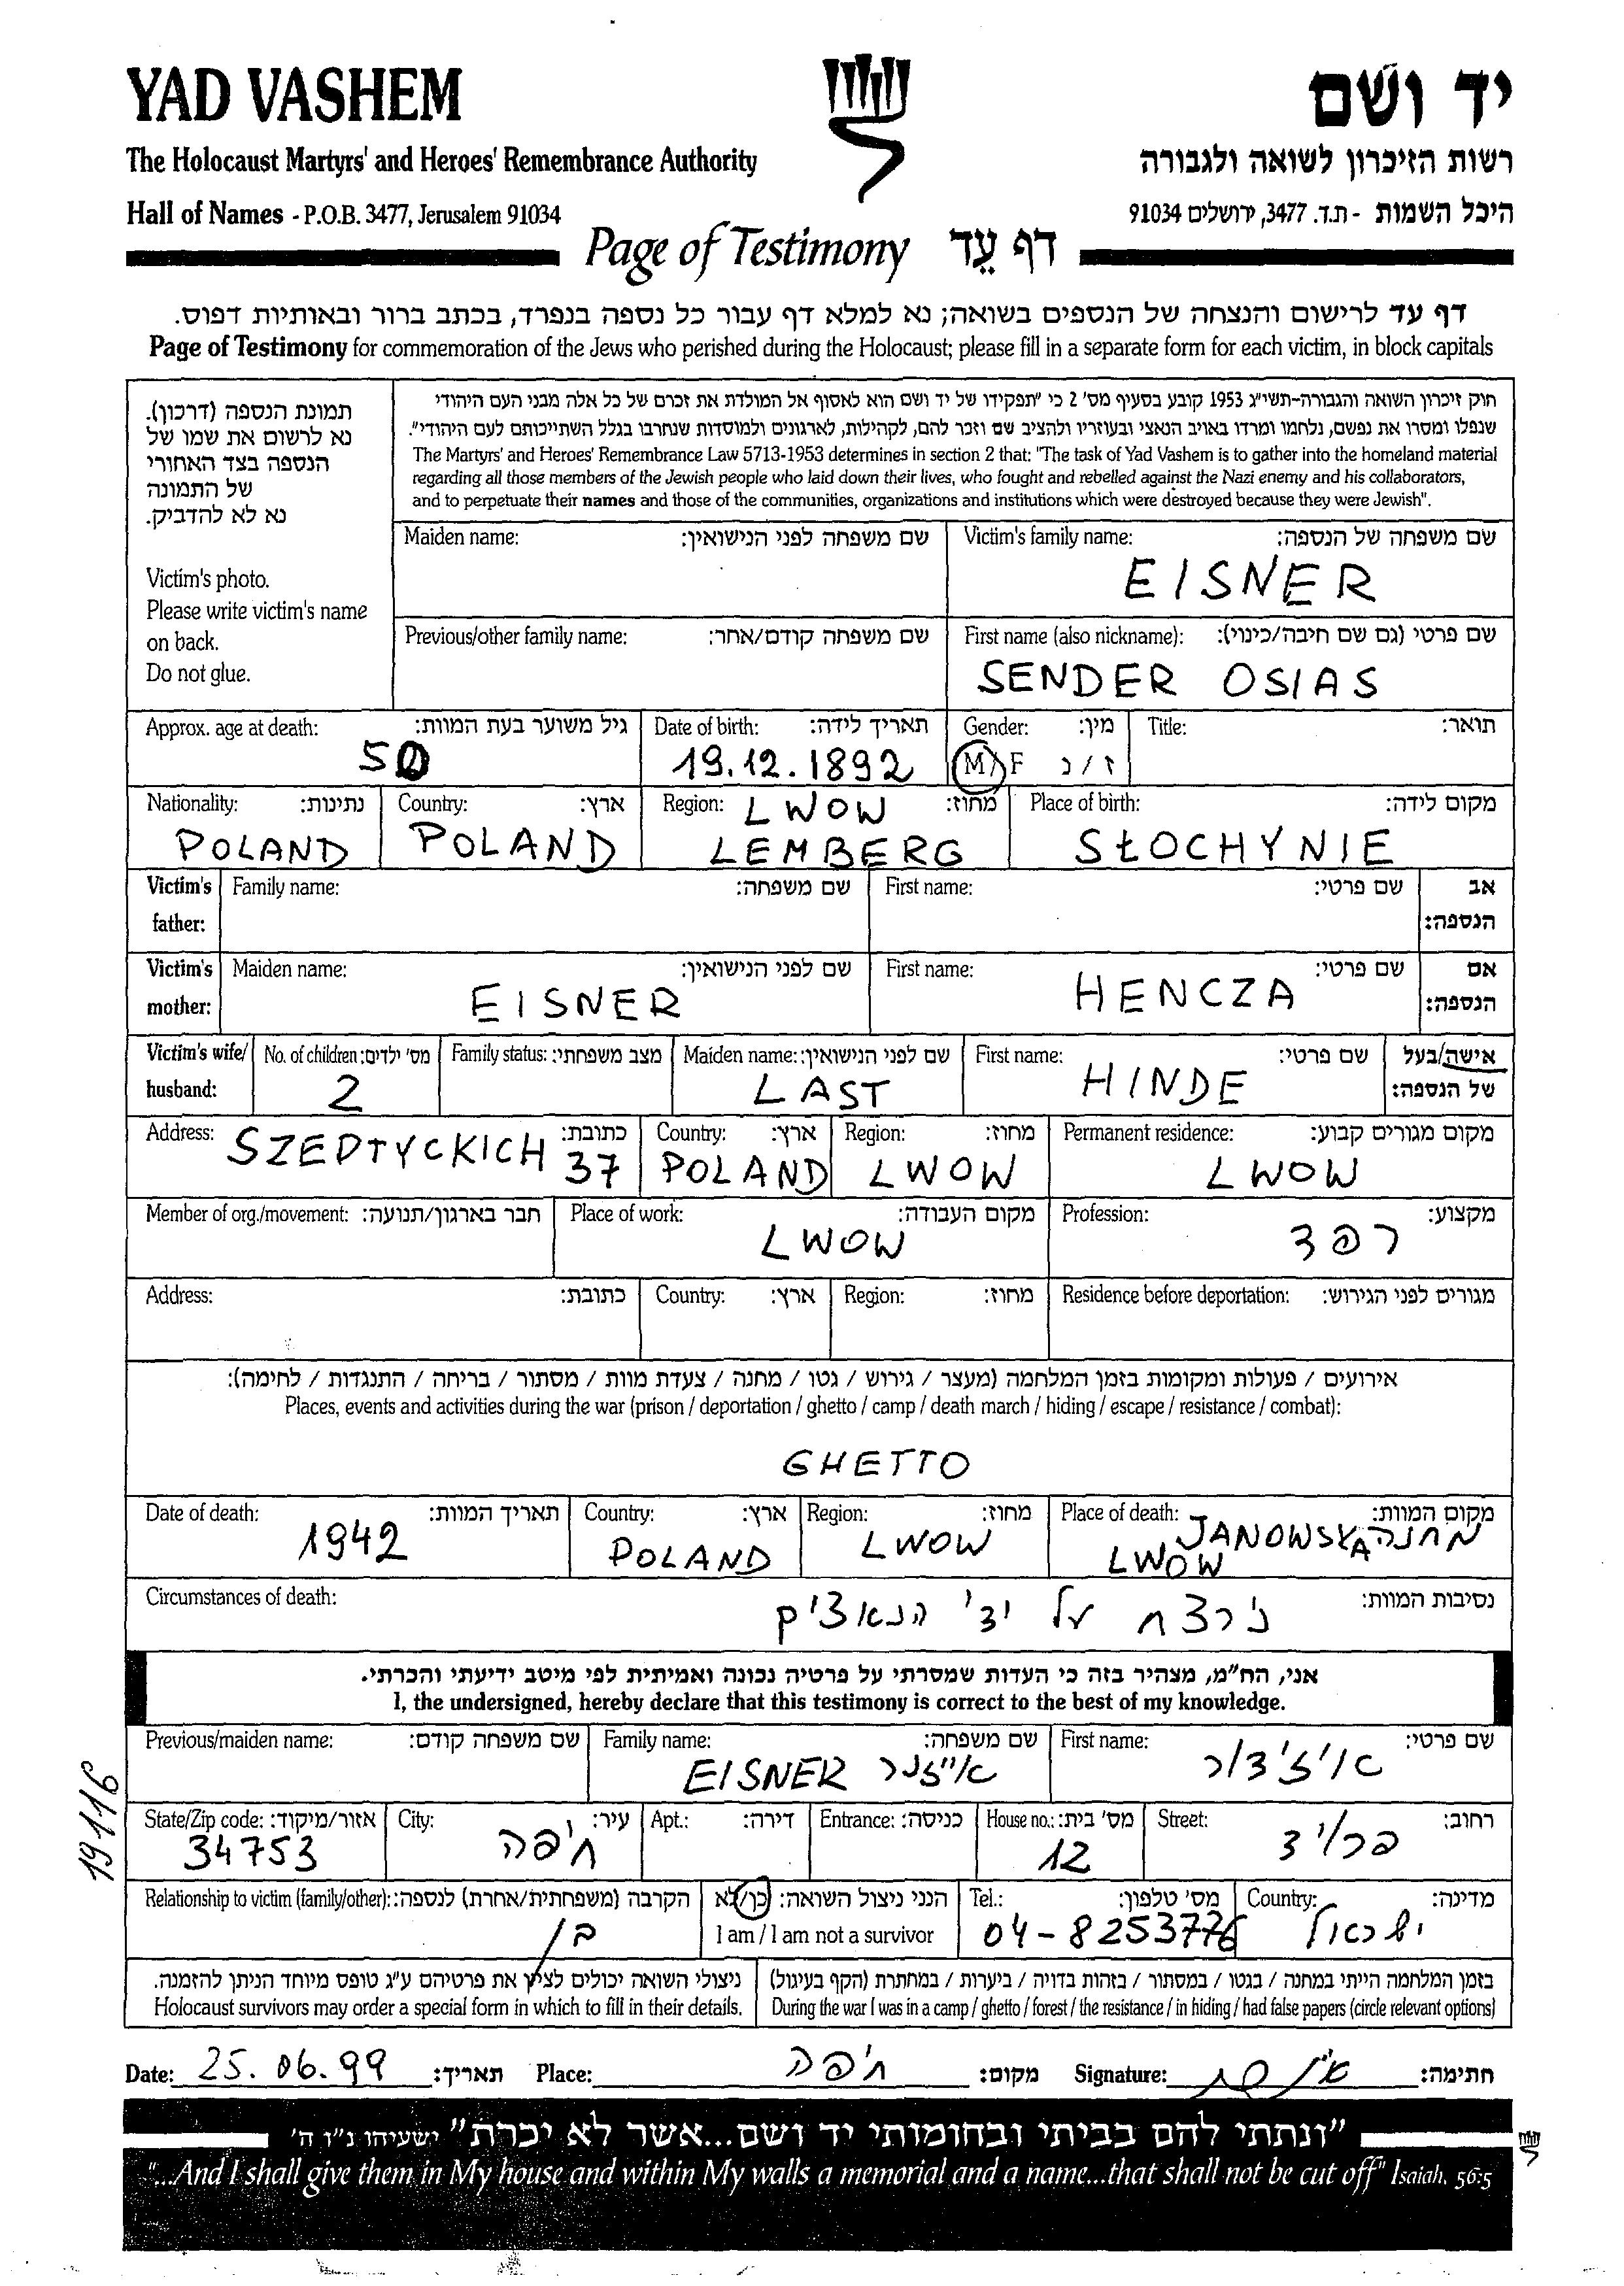 YAD VASHEM
יד ושם
The Holocaust Martyrs' and Heroes' Remembrance Authority
רשות הזיכרון לשואה ולגבורה
Hall of Names - P.O.B. 3477, Jerusalem 91034
היכל השמות - ת.ד. 3477, ירושלים 91034
Page of Testimony דף עֵד
דף עד לרישום והנצחה של הנספים בשואה; נא למלא דף עבור כל נספה בנפרד, בכתב ברור ובאותיות דפוס.
Page of Testimony for commemoration of the Jews who perished during the Holocaust; please fill in a separate form for each victim, in block capitals
תמונת הנספה (דרכון).
נא לרשום את שמו של
הנספה בצד האחורי
של התמונה
נא לא להדביק.
Victim's photo.
Please write victim's name
on back.
Do not glue.
חוק זיכרון השואה והגבורה-תשי"ג 1953 קובע בסעיף מס' 2 כי "תפקידו של יד ושם הוא לאסוף אל המולדת את זכרם של כל אלה מבני העם היהודי
שנפלו ומסרו את נפשם, נלחמו ומרדו באויב הנאצי ובעוזריו ולהציב שם וזכר להם, לקהילות, לארגונים ולמוסדות שנחרבו בגלל השתייכותם לעם היהודי".
The Martyrs' and Heroes' Remembrance Law 5713-1953 determines in section 2 that: "The task of Yad Vashem is to gather into the homeland material
regarding all those members of the Jewish people who laid down their lives, who fought and rebelled against the Nazi enemy and his collaborators,
and to perpetuate their names and those of the communities, organizations and institutions which were destroyed because they were Jewish".
Maiden name: שם משפחה לפני הנישואין:
Victim's family name: שם משפחה של הנספה:
EISNER
Previous/other family name: שם משפחה קודם/אחר:
First name (also nickname): שם פרטי (גם שם חיבה/כינוי):
SENDER OSIAS
Approx. age at death: גיל משוער בעת המוות:
50
Date of birth: תאריך לידה:
19.12.1892
Gender: מין:
M / F ז / נ
Title: תואר:
Nationality: נתינות:
POLAND
Country: ארץ:
POLAND
Region: LWOW מחוז:
LEMBERG
Place of birth: מקום לידה:
SŁOCHYNIE
Victim's father: Family name: שם משפחה: First name: שם פרטי: אב הנספה:
Victim's mother: Maiden name: שם לפני הנישואין: First name: שם פרטי: אם הנספה:
EISNER HENCZA
Victim's wife/ husband: No. of children: מס' ילדים: Family status: מצב משפחתי: Maiden name: שם לפני הנישואין: First name: שם פרטי: אישה/בעל של הנספה:
2 LAST HINDE
Address: כתובת:
SZEPTYCKICH 37
Country: ארץ:
POLAND
Region: מחוז:
LWOW
Permanent residence: מקום מגורים קבוע:
LWOW
Member of org./movement: חבר בארגון/תנועה:
Place of work: מקום העבודה:
LWOW
Profession: מקצוע:
רפד
Address: כתובת: Country: ארץ: Region: מחוז: Residence before deportation: מגורים לפני הגירוש:
אירועים / פעולות ומקומות בזמן המלחמה (מעצר / גירוש / גטו / מחנה / צעדת מוות / מסתור / בריחה / התנגדות / לחימה):
Places, events and activities during the war (prison / deportation / ghetto / camp / death march / hiding / escape / resistance / combat):
GHETTO
Date of death: תאריך המוות:
1942
Country: ארץ:
POLAND
Region: מחוז:
LWOW
Place of death: מקום המוות:
מחנה JANOWSKA
LWOW
Circumstances of death: נסיבות המוות:
נירצח על ידי הנאצים
אני, הח"מ, מצהיר בזה כי העדות שמסרתי על פרטיה נכונה ואמיתית לפי מיטב ידיעתי והכרתי.
I, the undersigned, hereby declare that this testimony is correct to the best of my knowledge.
Previous/maiden name: שם משפחה קודם:
Family name: שם משפחה:
EISNER אייזנר
First name: שם פרטי:
איזידור
State/Zip code: אזור/מיקוד:
34753
City: עיר:
חיפה
Apt.: דירה:
Entrance: כניסה:
House no.: מס' בית:
12
Street: רחוב:
Relationship to victim (family/other): הקרבה (משפחתית/אחרת) לנספה:
בן
הנני ניצול השואה: כן/לא
I am / I am not a survivor
Tel.: מס' טלפון:
04-8253776
Country: מדינה:
ישראל
ניצולי השואה יכולים לציין את פרטיהם ע"ג טופס מיוחד הניתן להזמנה.
Holocaust survivors may order a special form in which to fill in their details.
בזמן המלחמה הייתי במחנה / בגטו / במסתור / בזהות בדויה / ביערות / במחתרת (הקף בעיגול)
During the war I was in a camp / ghetto / forest / the resistance / in hiding / had false papers (circle relevant options)
Date: 25.06.99 תאריך: Place: חיפה מקום: Signature: חתימה:
"ונתתי להם בביתי ובחומותי יד ושם...אשר לא יכרת" ישעיהו נ"ו ה'
"...And I shall give them in My house and within My walls a memorial and a name...that shall not be cut off" Isaiah, 56:5
19116